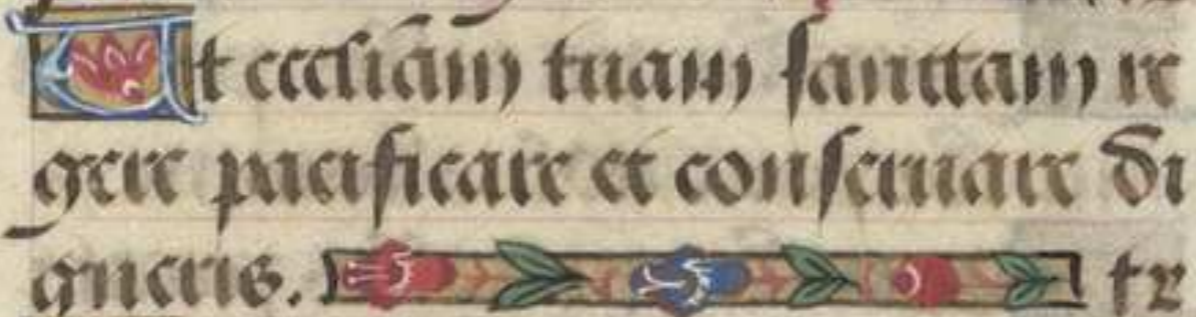 Ut eccliam tuam sanctam re
gere pacificare et conseruare di
gneris. tr